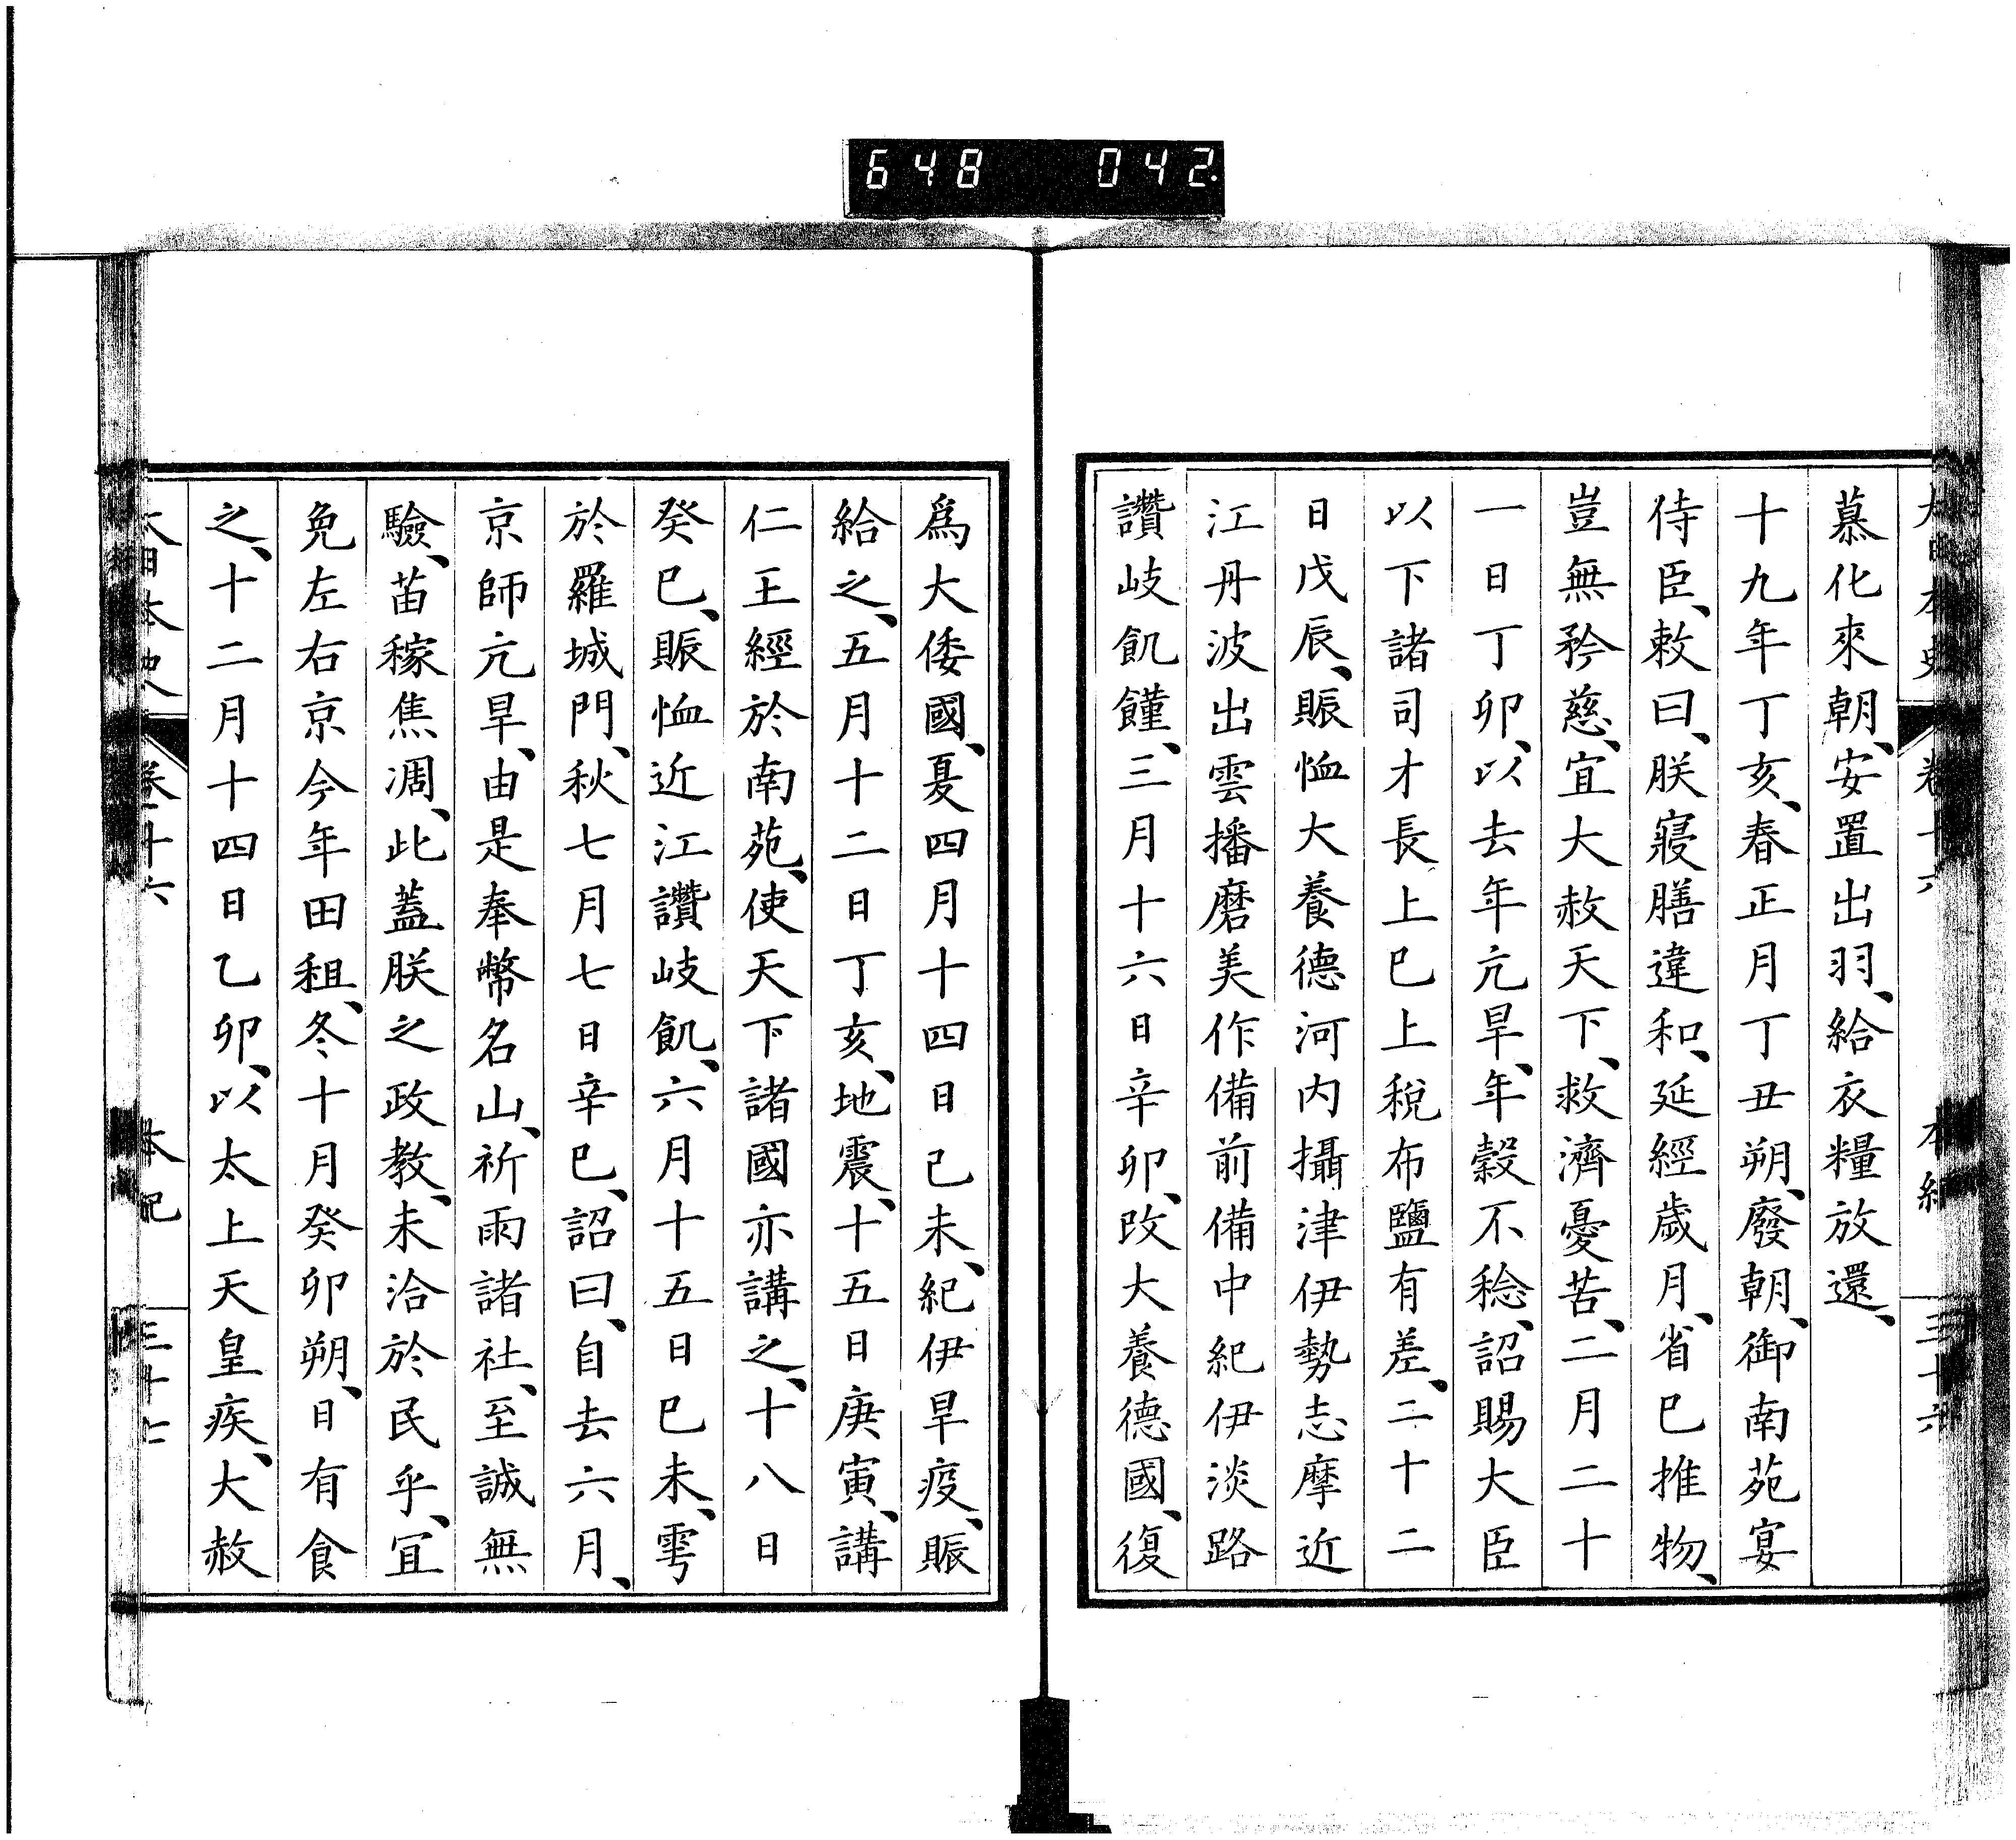 648 042
慕化來朝、安置出羽、給衣糧放還、
十九年丁亥、春正月丁丑朔、廢朝、御南苑宴
侍臣、敕曰、朕寢膳違和、延經歲月、省已推物、
豈無矜慈、宜大赦天下、救濟憂苦、二月二十
一日丁卯、以去年亢旱、年穀不稔、詔賜大臣
以下諸司才長上已上稅布鹽有差、二十二
日戊辰、賑恤大養德河內攝津伊勢志摩近
江丹波出雲播磨美作備前備中紀伊淡路
讚岐飢饉、三月十六日辛卯、改大養德國、復
爲大倭國、夏四月十四日己未、紀伊旱疫、賑
給之、五月十二日丁亥、地震、十五日庚寅、講
仁王經於南苑、使天下諸國亦講之、十八日
癸巳、賑恤近江讚岐飢、六月十五日已未、雩
於羅城門、秋七月七日辛巳、詔曰、自去六月、
京師亢旱、由是奉幣名山、祈雨諸社、至誠無
驗、苗稼焦凋、此蓋朕之政教、未洽於民乎、宜
免左右京今年田租、冬十月癸卯朔、日有食
之、十二月十四日乙卯、以太上天皇疾、大赦
大日本史 卷十六 本紀 三十七